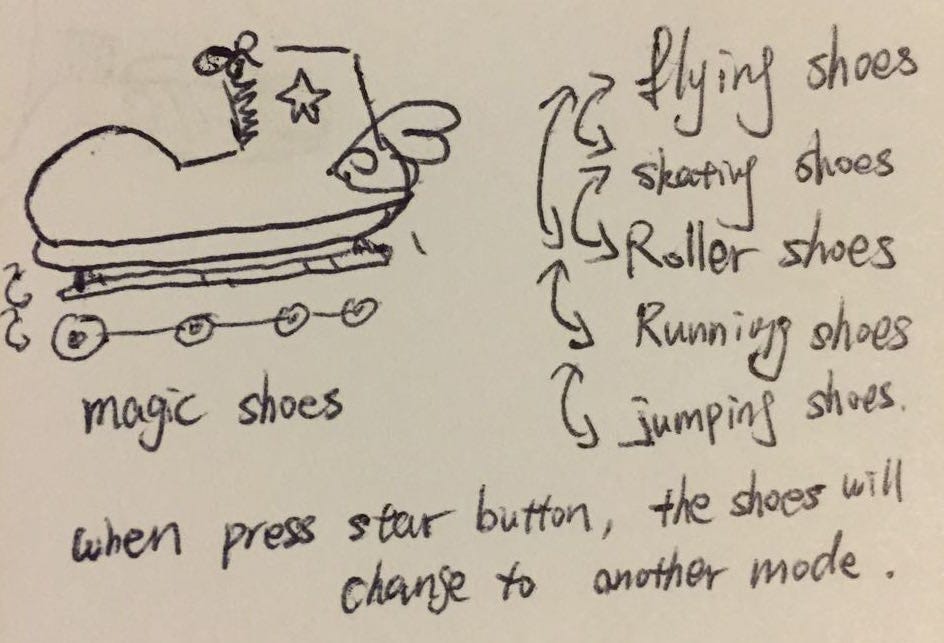 flying shoes
skating shoes
Roller shoes
Running shoes
jumping shoes.
magic shoes
when press star button, the shoes will
change to another mode.